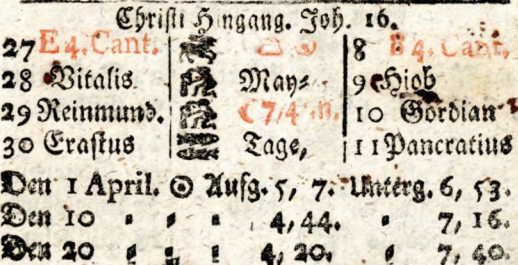 Christi Hingang. Joh. 16.
27 E 4. Cant. 8 B 4. Cant.
28 Vitalis May= 9 Hiob
29 Reinmund. ☾ 7, 4 10 Gordian
30 Erastus Tage, 11 Pancratius
Den 1 April. ☉ Aufg. 5, 7. Unterg. 6, 53.
Den 10 = = = 4, 44. = 7, 16.
Den 20 = = = 4, 20. = 7, 40.